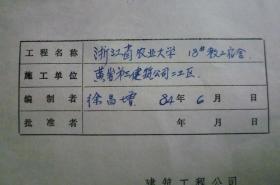 工程名称 浙江省农业大学 13#教工宿舍
施工单位 黄岩第三建筑公司二工区
编制者 徐昌增 84年6月 日
批准者 年 月 日
建筑工程公司